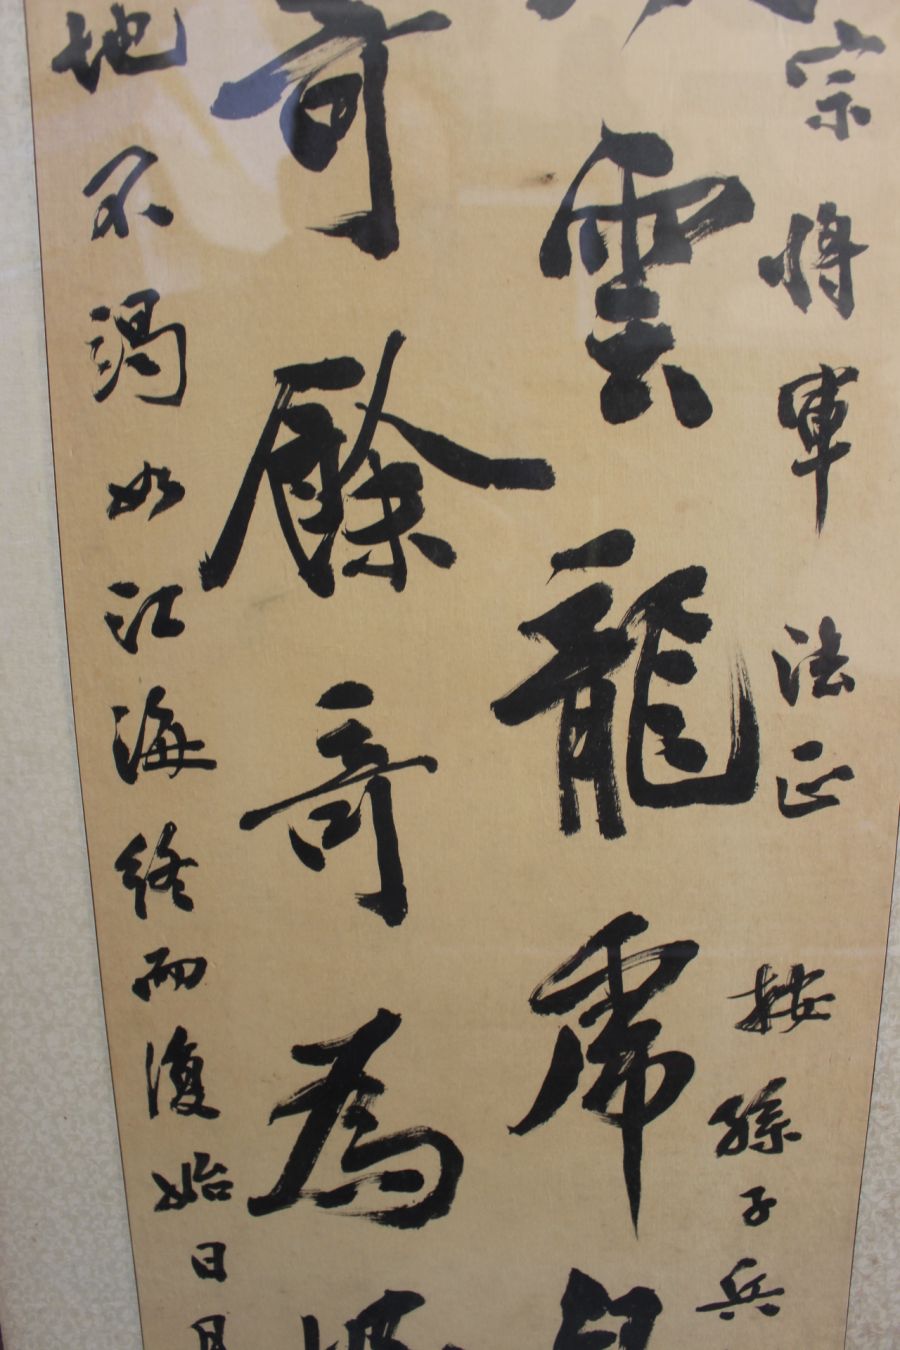 宗將軍法正　按孫子兵
雲龍虎
奇餘奇為
地不渇如江海終而復始日月